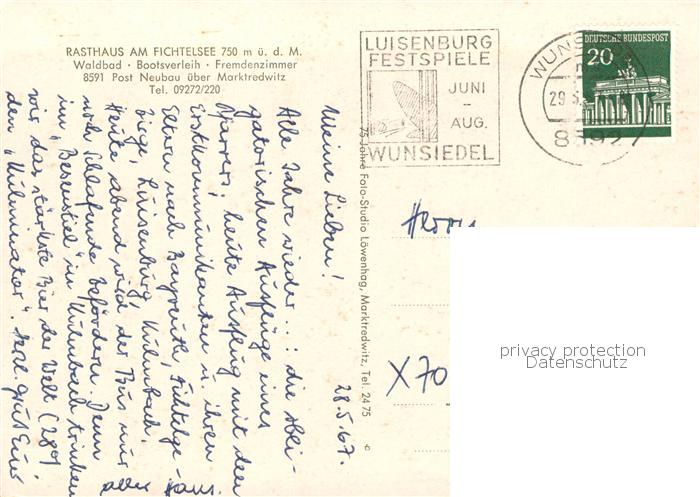 RASTHAUS AM FICHTELSEE 750 m ü. d. M.
Waldbad · Bootsverleih · Fremdenzimmer
8591 Post Neubau über Marktredwitz
Tel. 09272/220
LUISENBURG
FESTSPIELE
JUNI
-
AUG.
WUNSIEDEL
WUNSIEDEL
29.5.
8592
DEUTSCHE BUNDESPOST
20
28.5.67.
Meine Lieben!
Alle Jahre wieder...: die obli-
gatorischen Ausflüge eines
Pfarrers, heute Ausflug mit den
Erstkommunikanten u. ihren
Eltern nach Bayreuth, Fichtelge-
birge, Luisenburg, Kulmbach.
Heute abend wird der Bus nur
noch Schlafende befördern. Denn
im "Bessenstiel" in Kulmbach trinken
wir das stärkste Bier der Welt (28%)
den "Kulminator". Herzl. Grüß Euer
alter Hans.
75 Jahre Foto-Studio Löwenhag, Marktredwitz, Tel. 24 75 ©
Herrn
X70
privacy protection
Datenschutz